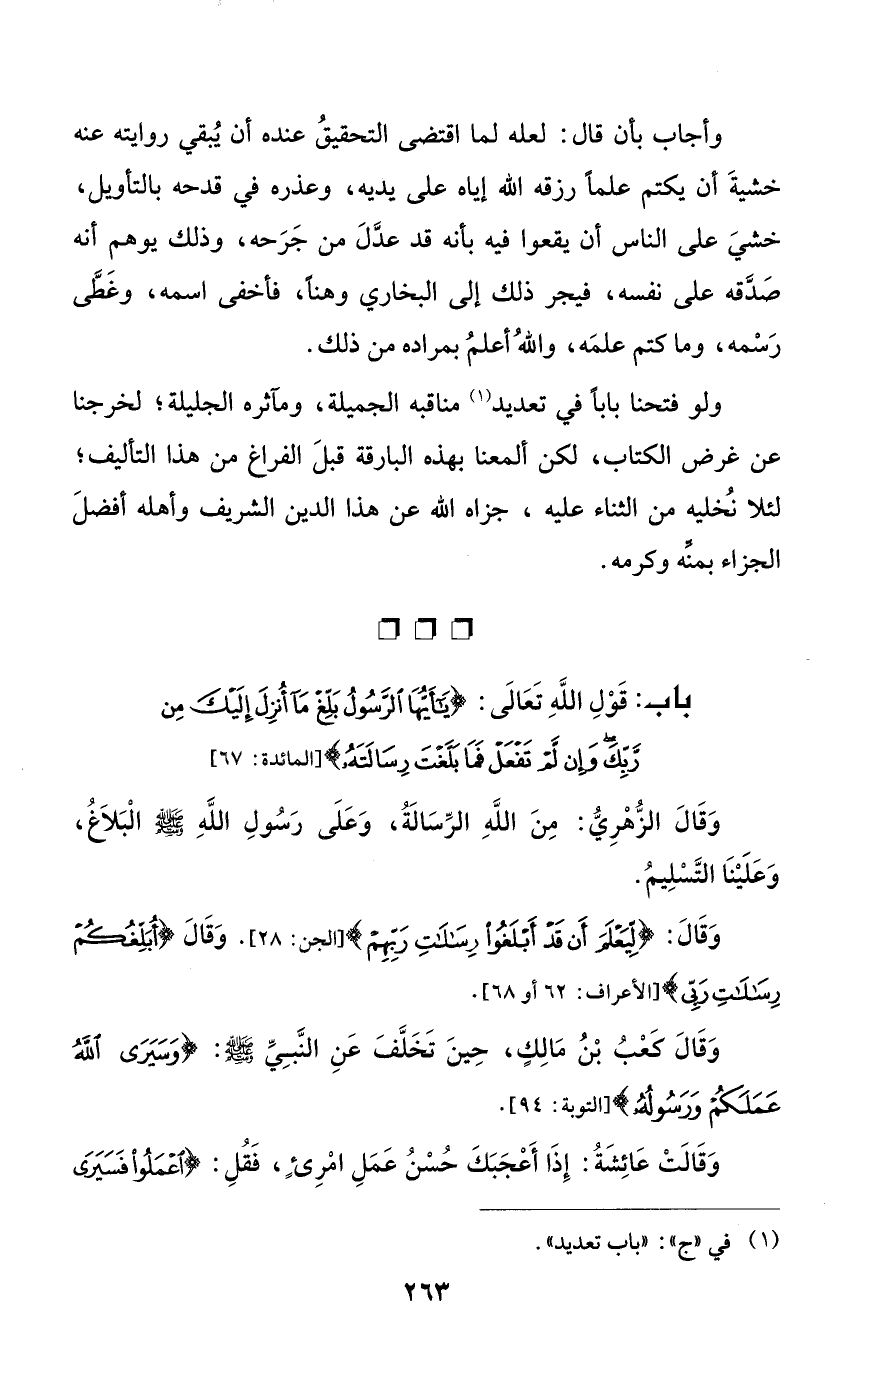 وأجاب بأن قال: لعله لما اقتضى التحقيقُ عنده أن يُبقي روايته عنه
خشيةَ أن يكتم علماً رزقه الله إياه على يديه، وعذره في قدحه بالتأويل،
خشيَ على الناس أن يقعوا فيه بأنه قد عدَّلَ من جَرَحه، وذلك يوهم أنه
صَدَّقه على نفسه، فيجر ذلك إلى البخاري وهناً، فأخفى اسمه، وغَطَّى
رَسْمه، وما كتم علمَه، واللهُ أعلمُ بمراده من ذلك.
ولو فتحنا باباً في تعديد(١) مناقبه الجميلة، ومآثره الجليلة؛ لخرجنا
عن غرض الكتاب، لكن ألمعنا بهذه البارقة قبلَ الفراغ من هذا التأليف؛
لئلا نُخليه من الثناء عليه ، جزاه الله عن هذا الدين الشريف وأهله أفضلَ
الجزاء بمنِّه وكرمه.
باب: قَوْلِ اللَّهِ تَعَالَى: ﴿يَٰٓأَيُّهَا ٱلرَّسُولُ بَلِّغۡ مَآ أُنزِلَ إِلَيۡكَ مِن
رَّبِّكَۖ وَإِن لَّمۡ تَفۡعَلۡ فَمَا بَلَّغۡتَ رِسَالَتَهُۥ﴾[المائدة: ٦٧]
وَقَالَ الزُّهْرِيُّ: مِنَ اللَّهِ الرِّسَالَةُ، وَعَلَى رَسُولِ اللَّهِ ﷺ الْبَلَاغُ،
وَعَلَيْنَا التَّسْلِيمُ.
وَقَالَ: ﴿لِّيَعۡلَمَ أَن قَدۡ أَبۡلَغُواْ رِسَٰلَٰتِ رَبِّهِمۡ﴾[الجن: ٢٨]. وَقَالَ ﴿أُبَلِّغُكُمۡ
رِسَٰلَٰتِ رَبِّي﴾[الأعراف: ٦٢ أو ٦٨].
وَقَالَ كَعْبُ بْنُ مَالِكٍ، حِينَ تَخَلَّفَ عَنِ النَّبِيِّ ﷺ: ﴿وَسَيَرَى ٱللَّهُ
عَمَلَكُمۡ وَرَسُولُهُۥ﴾[التوبة: ٩٤].
وَقَالَتْ عَائِشَةُ: إِذَا أَعْجَبَكَ حُسْنُ عَمَلِ امْرِئٍ، فَقُلِ: ﴿ٱعۡمَلُواْ فَسَيَرَى
(١) في «ج»: «باب تعديد».
٢٦٣